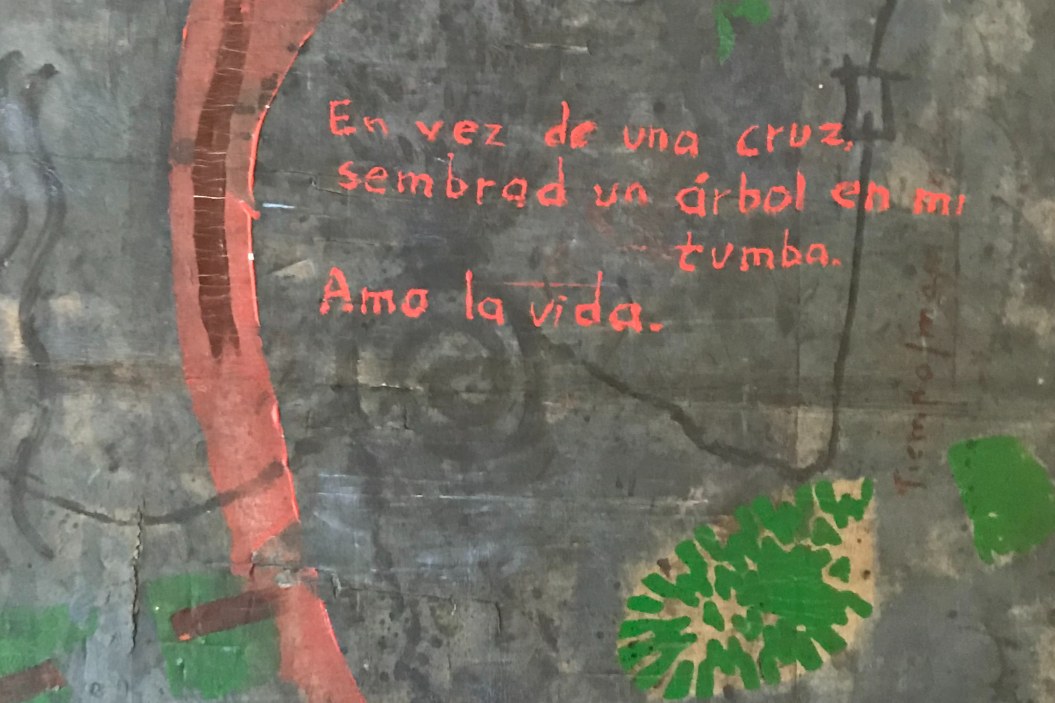 En vez de una cruz,
sembrad un árbol en mi
tumba.
Amo la vida.